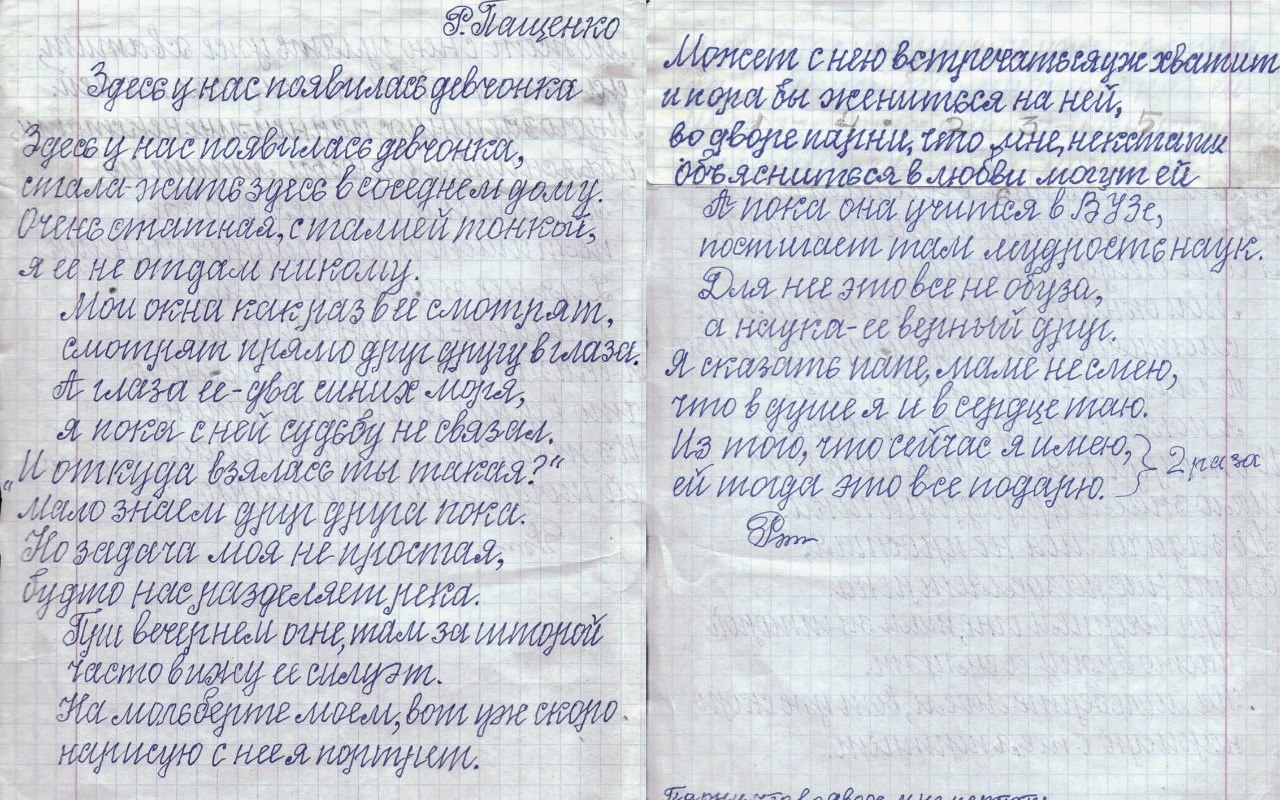 Р. Пащенко
Здесь у нас появилась девчонка
Здесь у нас появилась девчонка,
стала жить здесь в соседнем дому.
Очень статная, с талией тонкой,
я ее не отдам никому.
Мои окна как раз в ее смотрят,
смотрят прямо друг другу в глаза.
А глаза ее - два синих моря,
я пока с ней судьбу не связал.
„И откуда взялась ты такая?“
Мало знаем друг друга пока.
Но задача моя не простая,
будто нас разделяет река.
При вечернем огне, там за шторой
часто вижу ее силуэт.
На мольберте моем, вот уже скоро
нарисую с нее я портрет.
Может с нею встречаться уж хватит
и пора бы жениться на ней,
во дворе парни, что мне, некстати
объясниться в любви могут ей
А пока она учится в ВУЗе,
постигает там мудрость наук.
Для нее это все не обуза,
а наука - ее верный друг.
Я сказать папе, маме не смею,
что в душе я и в сердце таю.
Из того, что сейчас я имею,
ей тогда это все подарю. } 2 раза